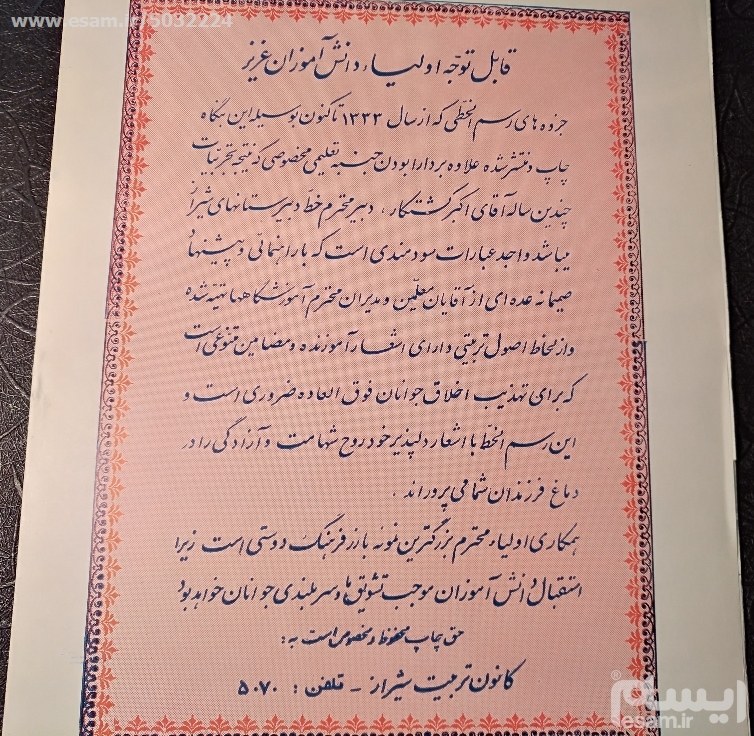 www.esam.ir/5032224
قابل توجّه اولیاء دانش آموزان عزیز
جزوه های رسم الخطی که از سال ۱۳۳۳ تاکنون بوسیله این بنگاه
چاپ و منتشر شده علاوه بر دارا بودن جنبه تعلیمی مخصوصی که نتیجه تجربیات
چندین ساله آقای اکبر گشتگار، دبیر محترم خط دبیرستانهای شیراز
میباشد واجد عبارات سودمندی است که با راهنمائی و پیشنهاد
صمیمانه عده ای از آقایان معلّمین و مدیران محترم آموزشگاهها تهیه شده
و از لحاظ اصول تربیتی دارای اشعار آموزنده و مضامین متنوعی است
که برای تهذیب اخلاق جوانان فوق العاده ضروری است و
این رسم الخط با اشعار دلپذیر خود روح شهامت و آزادگی را در
دماغ فرزندان شما می پروراند.
همکاری اولیاء محترم بزرگترین نمونه بارز فرهنگ دوستی است زیرا
استقبال دانش آموزان موجب تشویق ها و سربلندی جوانان خواهد بود
حق چاپ محفوظ و مخصوص است به:
کانون تربیت شیراز - تلفن: ۵۰۷۰
ایسام
esam.ir